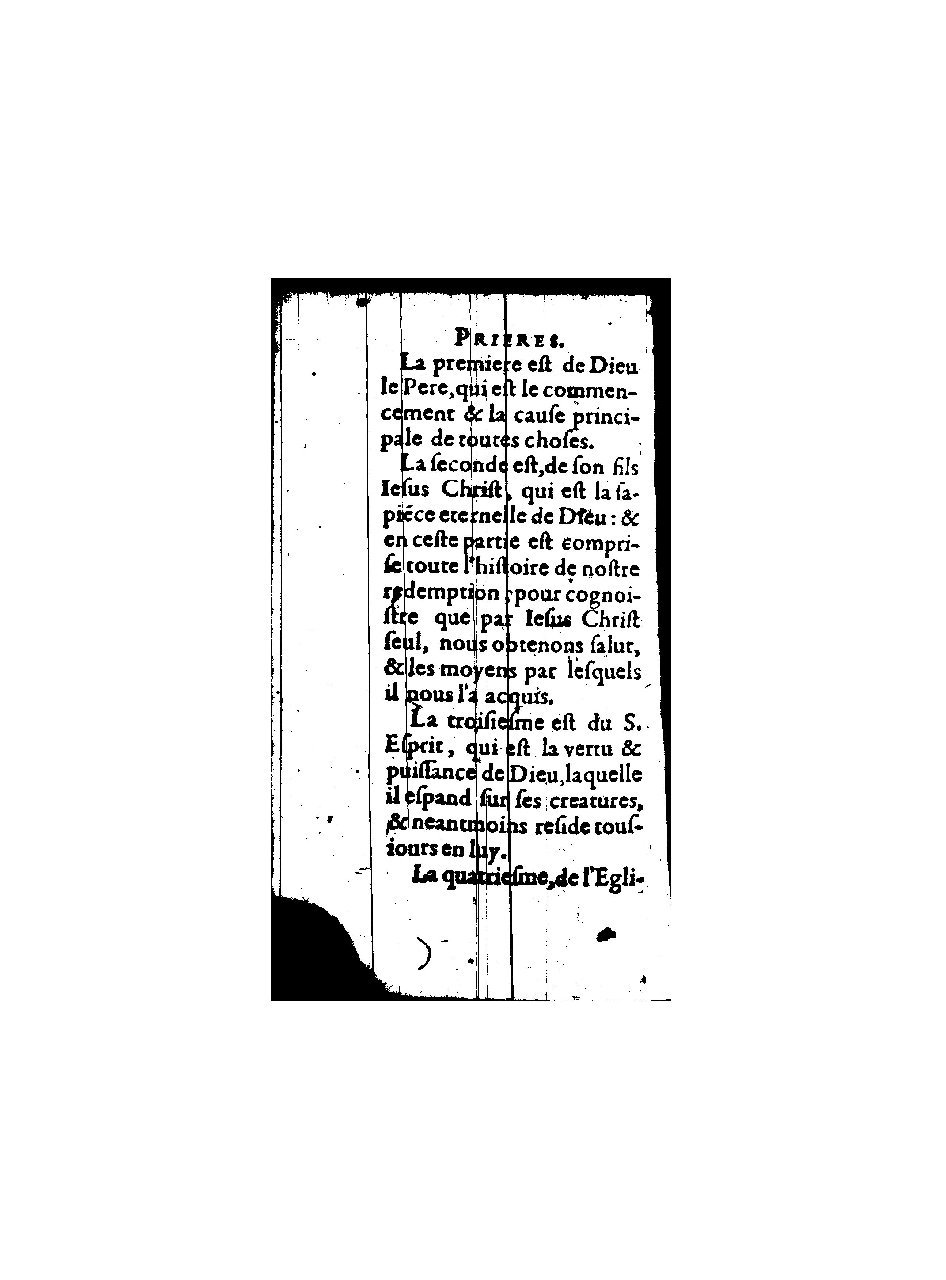 PRIERES.
La premiere eſt de Dieu
le Pere, qui eſt le commen-
cement & la cauſe princi-
pale de toutes choſes.
La ſeconde eſt, de ſon fils
Ieſus Chriſt, qui eſt la ſa-
piéce eternelle de Dieu : &
en ceſte partie eſt compri-
ſe toute l'hiſtoire de noſtre
redemption, pour cognoi-
ſtre que par Ieſus Chriſt
ſeul, nous obtenons ſalut,
& les moyens par leſquels
il nous l'a acquis.
La troiſieſme eſt du S.
Eſprit, qui eſt la vertu &
puiſſance de Dieu, laquelle
il eſpand ſur ſes creatures,
& neantmoins reſide touſ-
iours en luy.
La quatrieſme, de l'Egli-